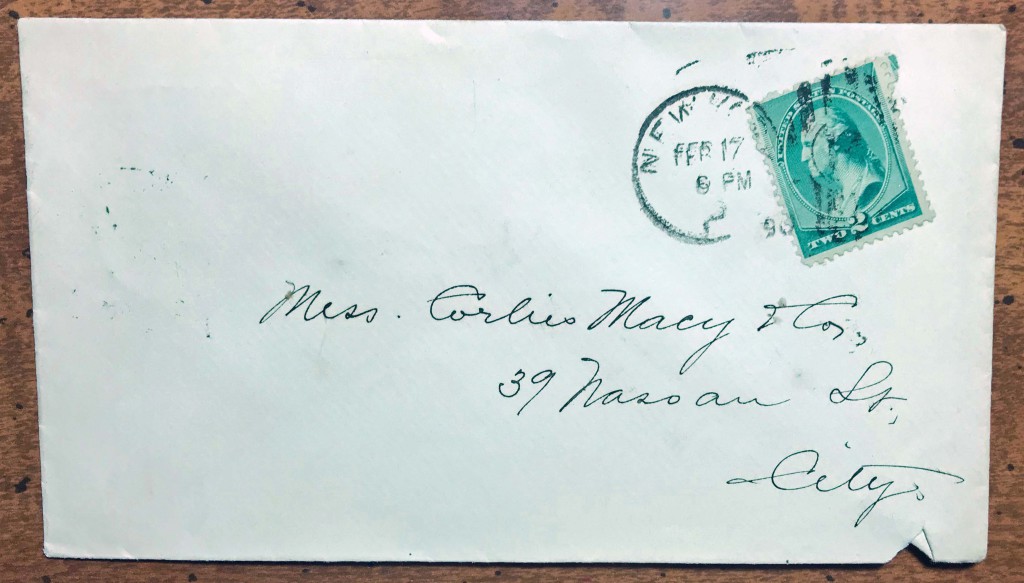 NEW
FEB 17
6 PM
2
90
UNITED STATES POSTAGE
TWO 2 CENTS
Mess. Corlies Macy & Co.,
39 Nassau St.,
City.